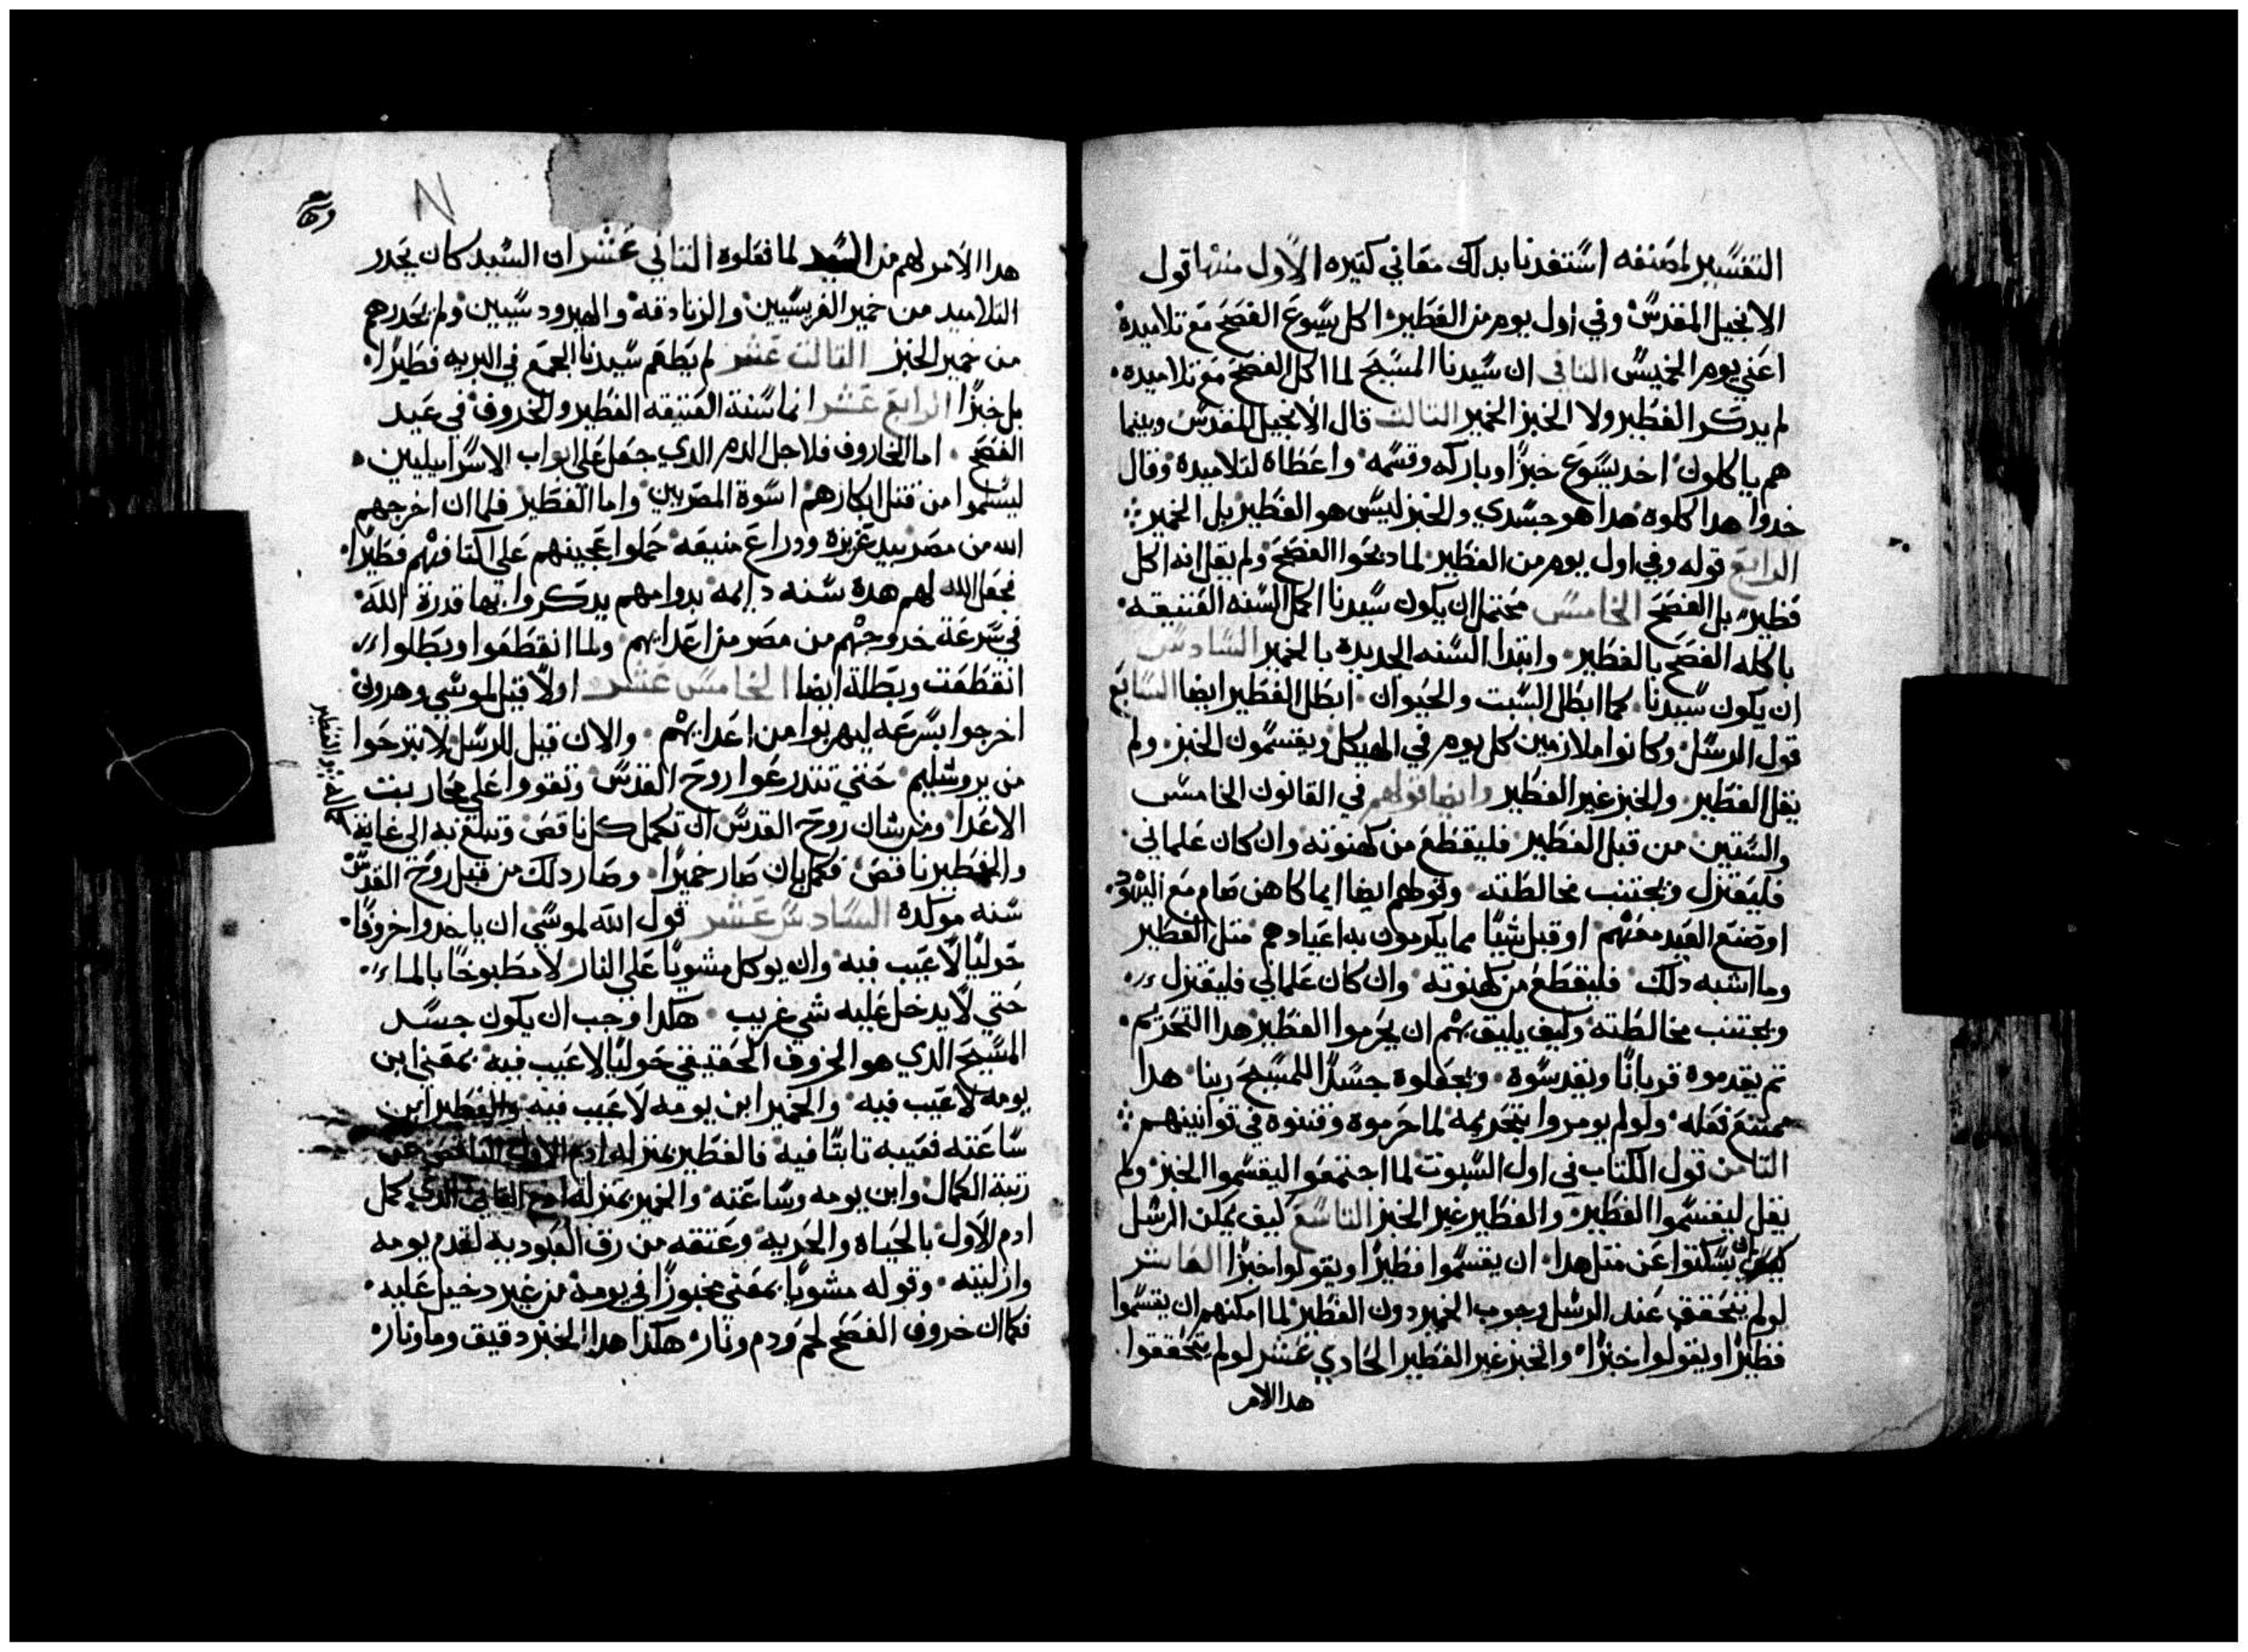 التفسير لمصنفه استفدنا بدلك معاني كتيره الاول منها قول
الانجيل المقدس وفي اول يوم من الفطير اكل يسوع الفصح مع تلاميده
اعني يوم الخميس التاني ان سيدنا المسيح لما اكل الفصح مع تلاميده
لم يدكر الفطير ولا الخبز الخمير التالت قال الانجيل المقدس وبينما
هم ياكلون اخد يسوع خبزا وباركه وقسمه واعطاه لتلاميده وقال
خدوا هدا كلوه هدا هو جسدي والخبز ليس هو الفطير بل الخمير
الرابع قوله وفي اول يوم من الفطير لما دبحوا الفصح ولم يقل انه اكل
فطير بل الفصح الخامس محتمل ان يكون سيدنا اكمل السنه العتيقه
باكله الفصح بالفطير وابتدا السنه الجديده بالخمير السادس
ان يكون سيدنا كما ابطل السبت والحيوان ابطل الفطير ايضا السابع
قول الرسل وكانوا ملازمين كل يوم في الهيكل ويقسمون الخبز ولم
يقل الفطير والخبز غير الفطير وايضا قولهم في القانون الخامس
والستين من قبل الفطير فليقطع من كهنوته وان كان علماني
فليعتزل ويجتنب مخالطته وقولهم ايضا ايما كاهن صام مع اليهود
او صنع العيد معهم او قبل شيا مما يكرمون به اعيادهم متل الفطير
وما اشبه دلك فليقطع من كهنوته وان كان علماني فليعتزل
ويجتنب مخالطته وكيف يليق بهم ان يحرموا الفطير هدا التحريم
تم يقدموه قربانا ويقدسوه ويجعلوه جسدا للمسيح ربنا هدا
ممتنع فعله ولو لم يومروا بتحريمه لما حرموه وقننوه في قوانينهم
التامن قول الكتاب في اول السبوت لما اجتمعوا ليقسموا الخبز ولم
يقل ليقسموا الفطير والفطير غير الخبز التاسع كيف يمكن الرسل
ان يسكتوا عن متل هدا ان يقسموا فطيرا ويقولوا خبزا العاشر
لو لم يتحقق عند الرسل وجوب الخمير دون الفطير لما امكنهم ان يقسموا
فطيرا ويقولوا خبزا والخبز غير الفطير الحادي عشر لو لم يتحققوا
هدا الامر
هدا الامر لهم من السيد لما فعلوه التاني عشر ان السيد كان يحدر
التلاميد من خمير الفريسيين والزنادقه والهيرودسيين ولم يحدرهم
من خمير الخبز التالت عشر لم يطعم سيدنا الجمع في البريه فطيرا
بل خبزا الرابع عشر انما سنة العتيقه الفطير والخروف في عيد
الفصح اما الخاروف فلاجل الدم الدي جعل على ابواب الاسراييليين
ليسلموا من قتل ابكارهم اسوة المصريين واما الفطير فلما ان اخرجهم
الله من مصر بيد عزيزه ودراع منيعه حملوا عجينهم على اكتافهم فطيرا
فجعل الله لهم هده سنه دايمه بدوامهم يدكروا بها قدرة الله
في سرعة خروجهم من مصر من اعدايهم ولما انقطعوا وبطلوا
انقطعت وبطلة ايضا الخامس عشر اولا قيل لموسي وهرون
اخرجوا بسرعه ليهربوا من اعدايهم والان قيل للرسل لا تبرحوا
من يروشليم حتي تتدرعوا روح القدس وتقووا علي محاربت
الاعدا ومن شان روح القدس ان تكمل كل ناقص وتبلغ به الى غاية
والفطير ناقص فكماله ان صار خميرا وصار دلك من قبل روح القدس
سنه موكده السادس عشر قول الله لموسي ان ياخدوا خروفا
حوليا لا عيب فيه وان يوكل مشويا على النار لا مطبوخا بالماء
حتي لا يدخل عليه شي غريب هكدا وجب ان يكون جسد
المسيح الدي هو الخروف الحقيقي حوليا لا عيب فيه بمعني ابن
يومه لا عيب فيه والخمير ابن يومه لا عيب فيه والفطير ابن
ساعته فعيبه تابتا فيه فالفطير بمنزلة ادم الاول الناقص عن
رتبة الكمال وابن يومه وساعته والخمير بمنزلة ادم التاني الدي كمل
ادم الاول بالحياه والحريه وعتقه من رق العبوديه لقدم يومه
وازليته وقوله مشويا بمعني مخبوزا في يومه من غير دخيل عليه
فكما ان خروف الفصح لحم ودم ونار هكدا هدا الخبز دقيق وما ونار